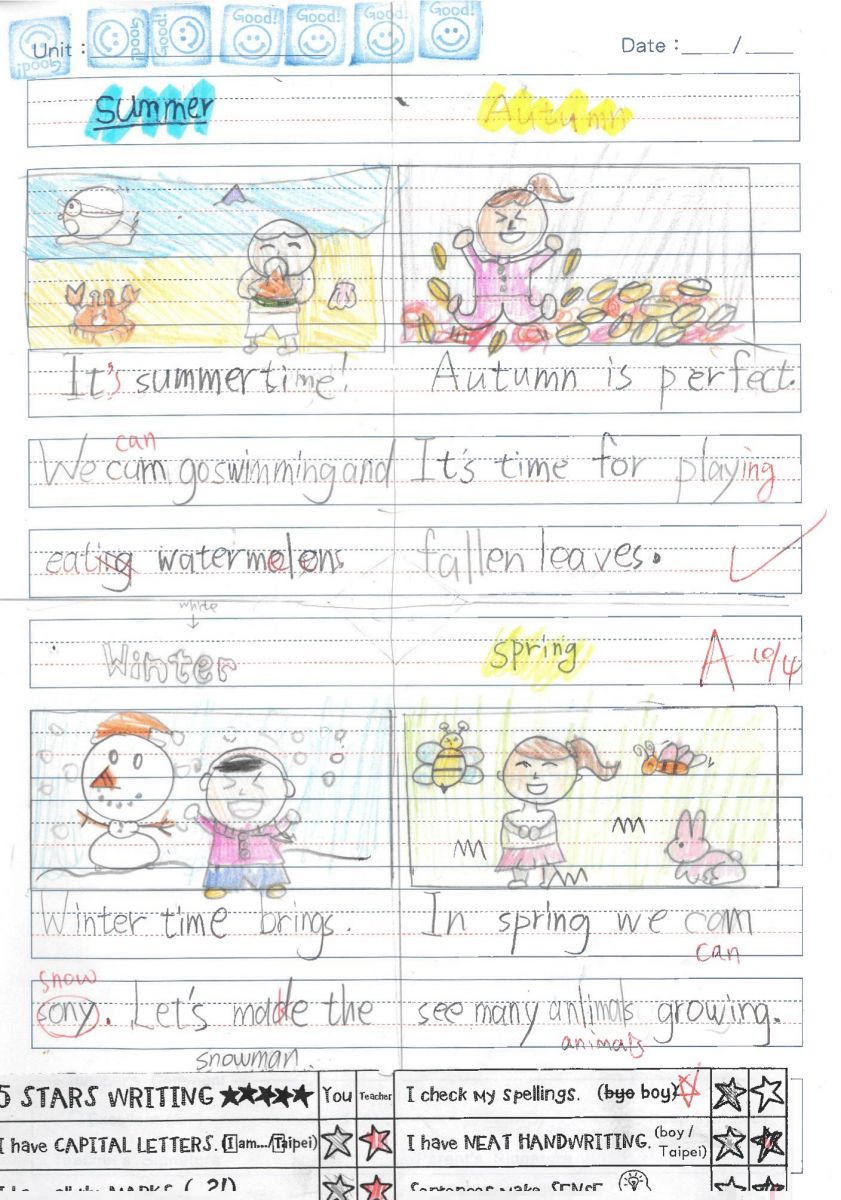 Good! Good! Good! Good! Good! Good! Good!
Unit :
Date : /
Summer
Autumn
It's summer time!
Autumn is perfect.
can
We cam go swimming and
It's time for playing
eating watermelons
fallen leaves.
white
Winter
spring
A 10/4
Winter time brings.
In spring we cam
can
snow
sony. Let's made the
see many anlimals growing.
animals
snowman.
5 STARS WRITING ★★★★★
You
Teacher
I check my spellings. (byo boy)
I have CAPITAL LETTERS. (I am.../Taipei)
I have NEAT HANDWRITING. (boy / Taipei)
Sentences make SENSE